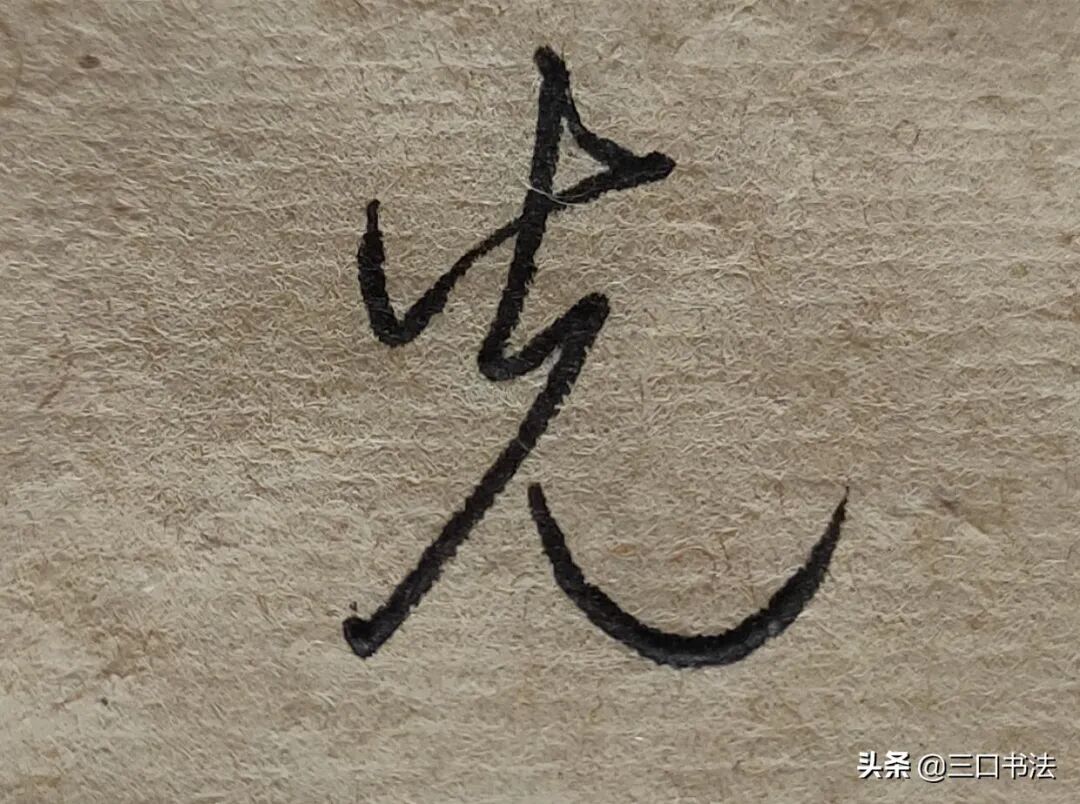 先
头条 @三口书法